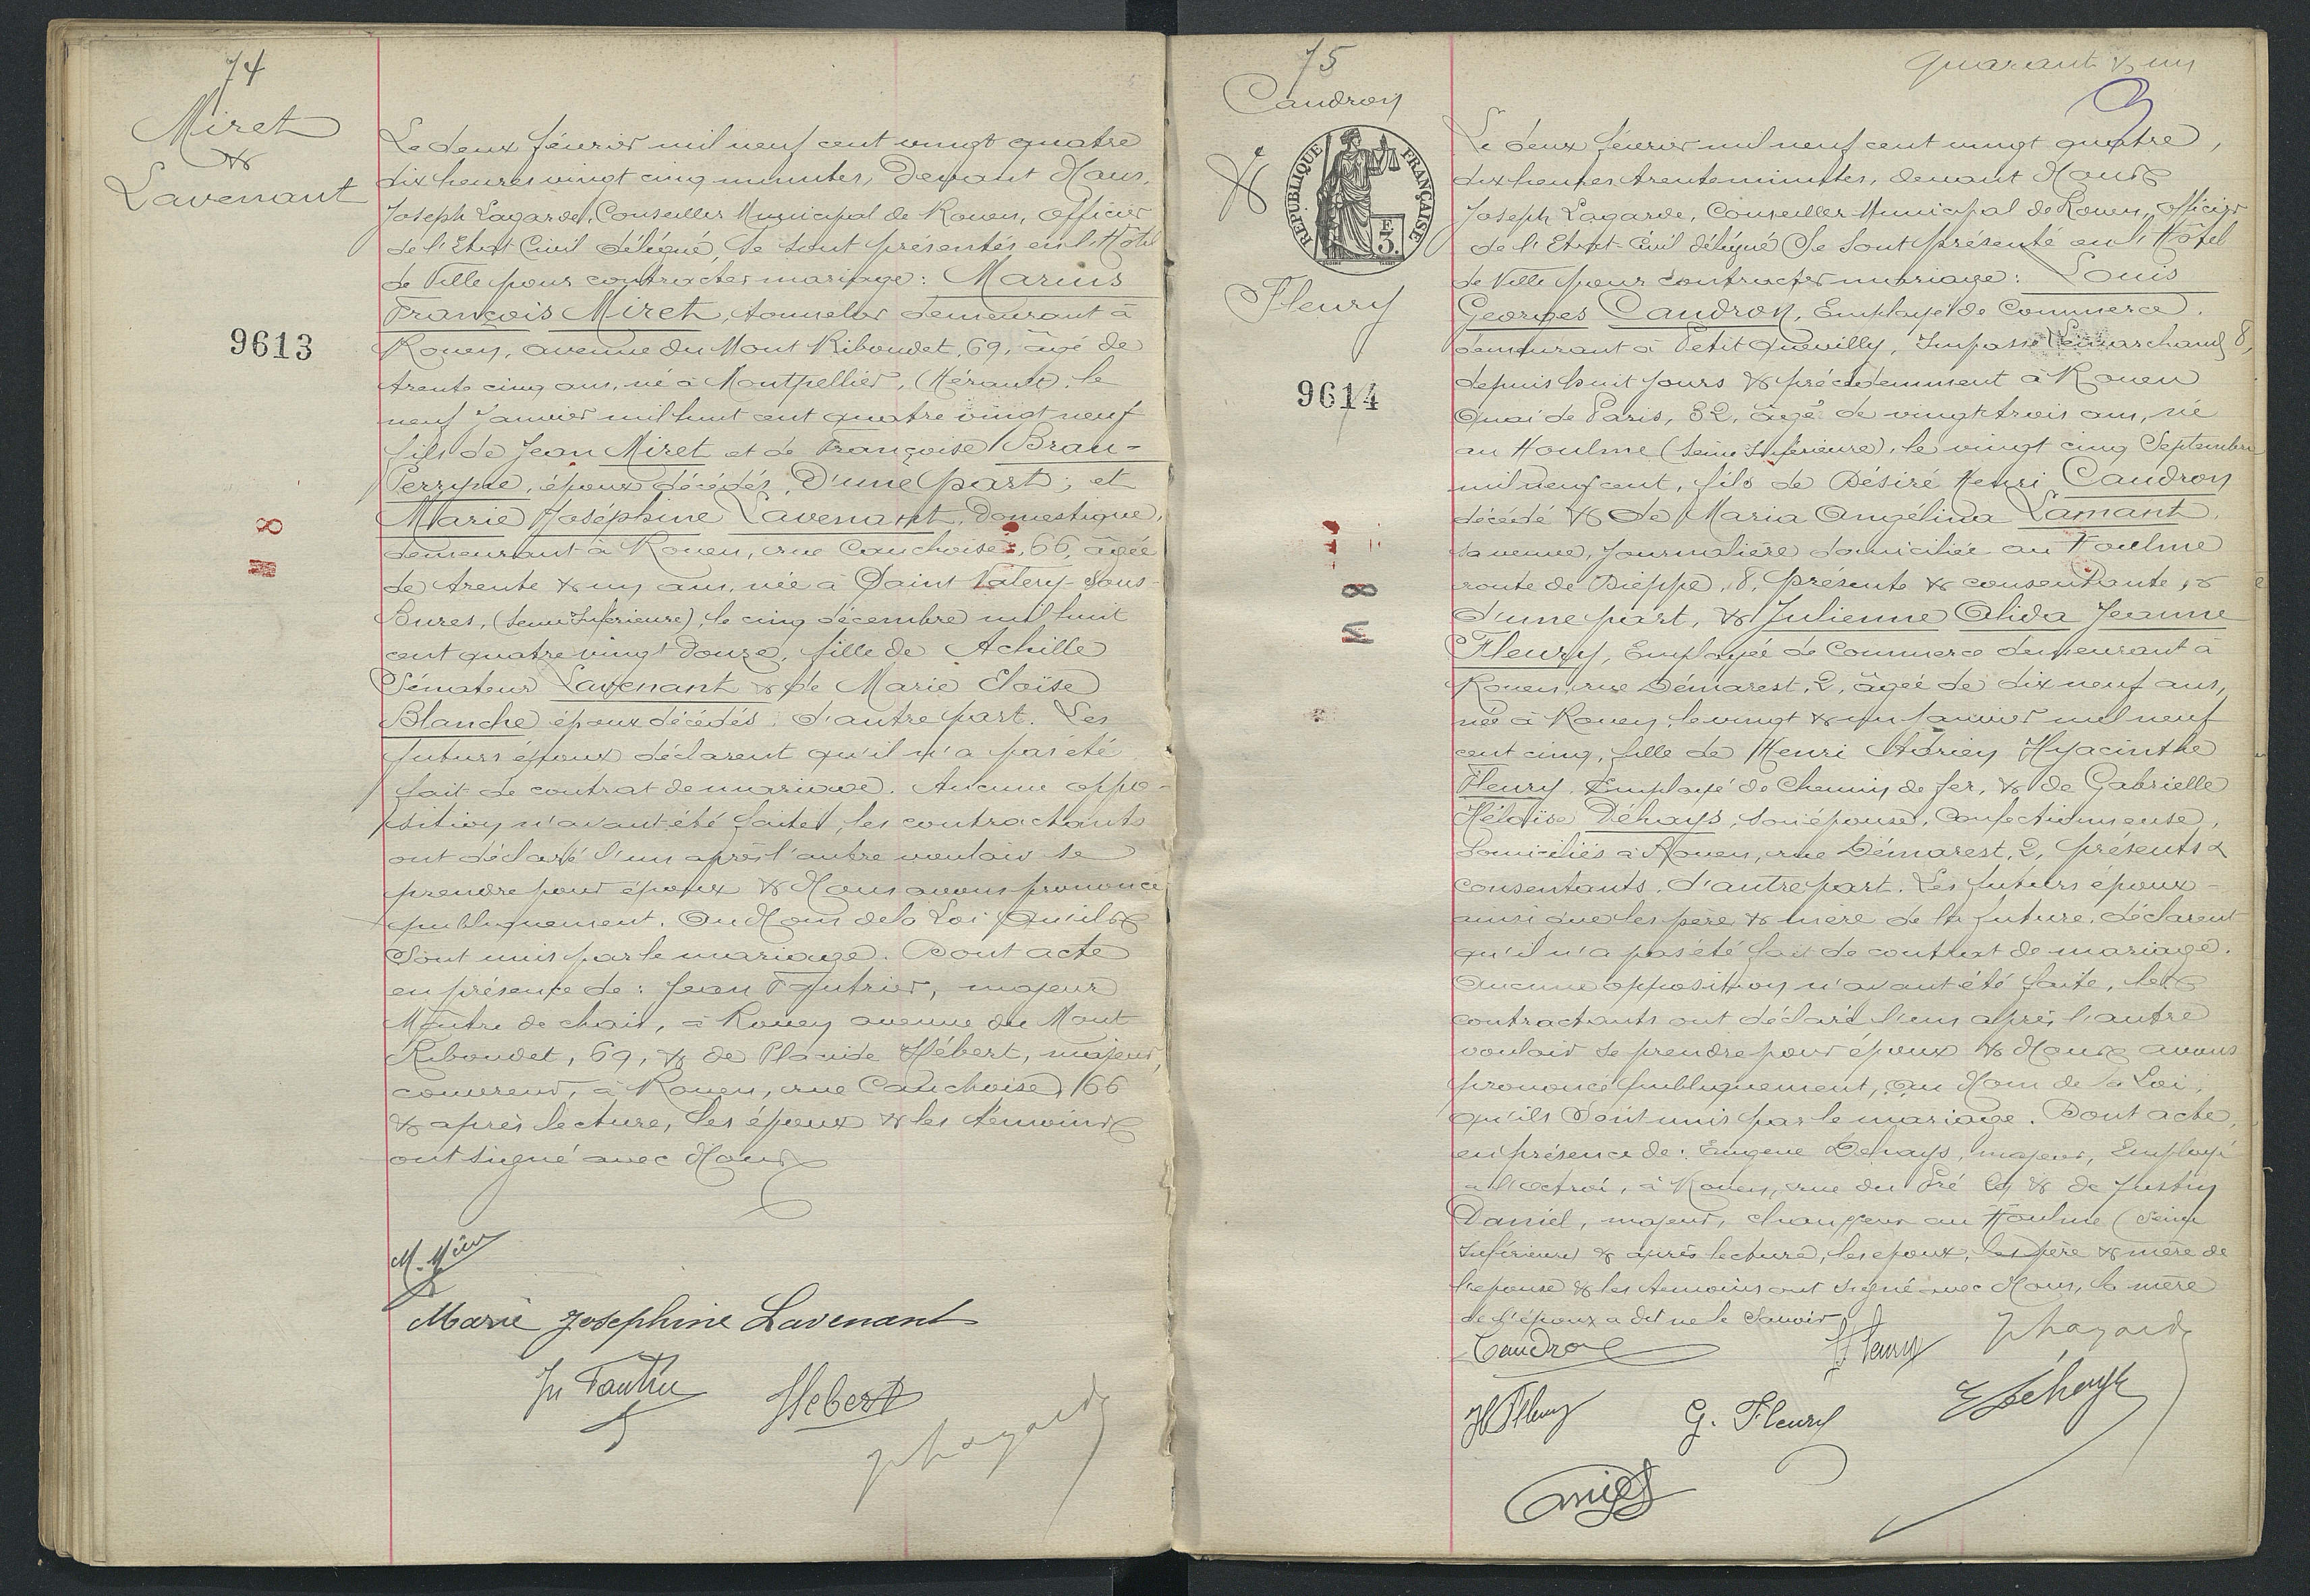 74
Miret
&
Lavenant
9613
8
Le deux février mil neuf cent vingt quatre
dix heures vingt cinq minutes, Devant Nous,
Joseph Lagarde, Conseiller Municipal de Rouen, officier
de l'Etat Civil délégué, se sont présentés en l'Hôtel
de Ville pour contracter mariage : Marius
François Miret, tonnelier demeurant à
Rouen, avenue du Mont Riboudet, 69, âgé de
trente cinq ans, né à Montpellier, (Hérault), le
neuf Janvier mil huit cent quatre vingt neuf
fils de Jean Miret et de Françoise
époux décédés, D'une part ; et
Marie Joséphine Lavenant, Domestique,
demeurant à Rouen, rue Cauchoise, 66, âgée
de trente & un ans, née à Saint Valery-sous-
Bures, (Seine Inférieure), le cinq décembre mil huit
cent quatre vingt douze, fille de Achille
Sénateur Lavenant & de Marie Eloïse
Blanche époux décédés ; d'autre part. Les
futurs époux déclarent qu'il n'a pas été
fait de contrat de mariage. Aucune oppo-
sition n'ayant été faite, les contractants
ont déclaré l'un après l'autre vouloir se
prendre pour époux & Nous avons prononcé
publiquement, Au Nom de la Loi, Qu'ils
Sont unis par le mariage. Dont acte
en présence de : Jean Fautrier, majeur
Maître de chais, à Rouen avenue du Mont
Riboudet, 69, & de Placide Hébert, majeur,
couvreur, à Rouen, rue Cauchoise, 66
& après lecture, les époux & les témoins
ont signé avec Nous
Marie Josephine Lavenant
Hebert
75
Caudron
&
REPUBLIQUE FRANÇAISE
3
Fleury
9614
8
quarant & un
Le deux février mil neuf cent vingt quatre,
dix heures trente minutes, devant Nous
Joseph Lagarde, Conseiller Municipal de Rouen, officier
de l'Etat-Civil délégué Se sont présenté en l'Hôtel
de Ville pour contracter mariage : Louis
Georges Caudron, Employé de Commerce,
demeurant à Petit Quevilly, Impasse Lemarchand 8,
depuis huit jours & précédemment à Rouen
Quai de Paris, 32, âgé de vingt trois ans, né
au Houlme (Seine Inférieure), le vingt cinq Septembre
mil neuf cent, fils de Désiré Henri Caudron
décédé & de Maria Angélina Lamant,
sa veuve, journalière domiciliée au Houlme
route de Dieppe, 8, présente & consentante,
d'une part, & Julienne Alida Jeanne
Fleury, Employée de Commerce demeurant à
Rouen, rue Démarest, 2, âgée de dix neuf ans,
née à Rouen, le vingt & un janvier mil neuf
cent cinq, fille de Henri Adrien Hyacinthe
Fleury, Employé de Chemin de fer, & de Gabrielle
Héloïse Déhays, son épouse, Confectionneuse,
Domiciliés à Rouen, rue Démarest, 2, présents &
consentants, d'autre part. Les futurs époux
ainsi que les père & mère de la future, déclarent
qu'il n'a pas été fait de contrat de mariage.
Aucune opposition n'ayant été faite, les
contractants ont déclaré l'un après l'autre
vouloir se prendre pour époux & Nous avons
prononcé publiquement, au Nom de la Loi,
qu'ils Sont unis par le mariage. Dont acte,
en présence de : Eugène Dehays, majeur, Employé
à l'octroi, à Rouen, rue du Pré & de Justin
Daniel, majeur, au Houlme (Seine
Inférieure) & après lecture, les époux, les père & mère de
l'épouse & les témoins ont signé avec Nous, la mère
de l'époux a dit ne le savoir
Caudron
Fleury
H Fleury
G. Fleury
E Déhays